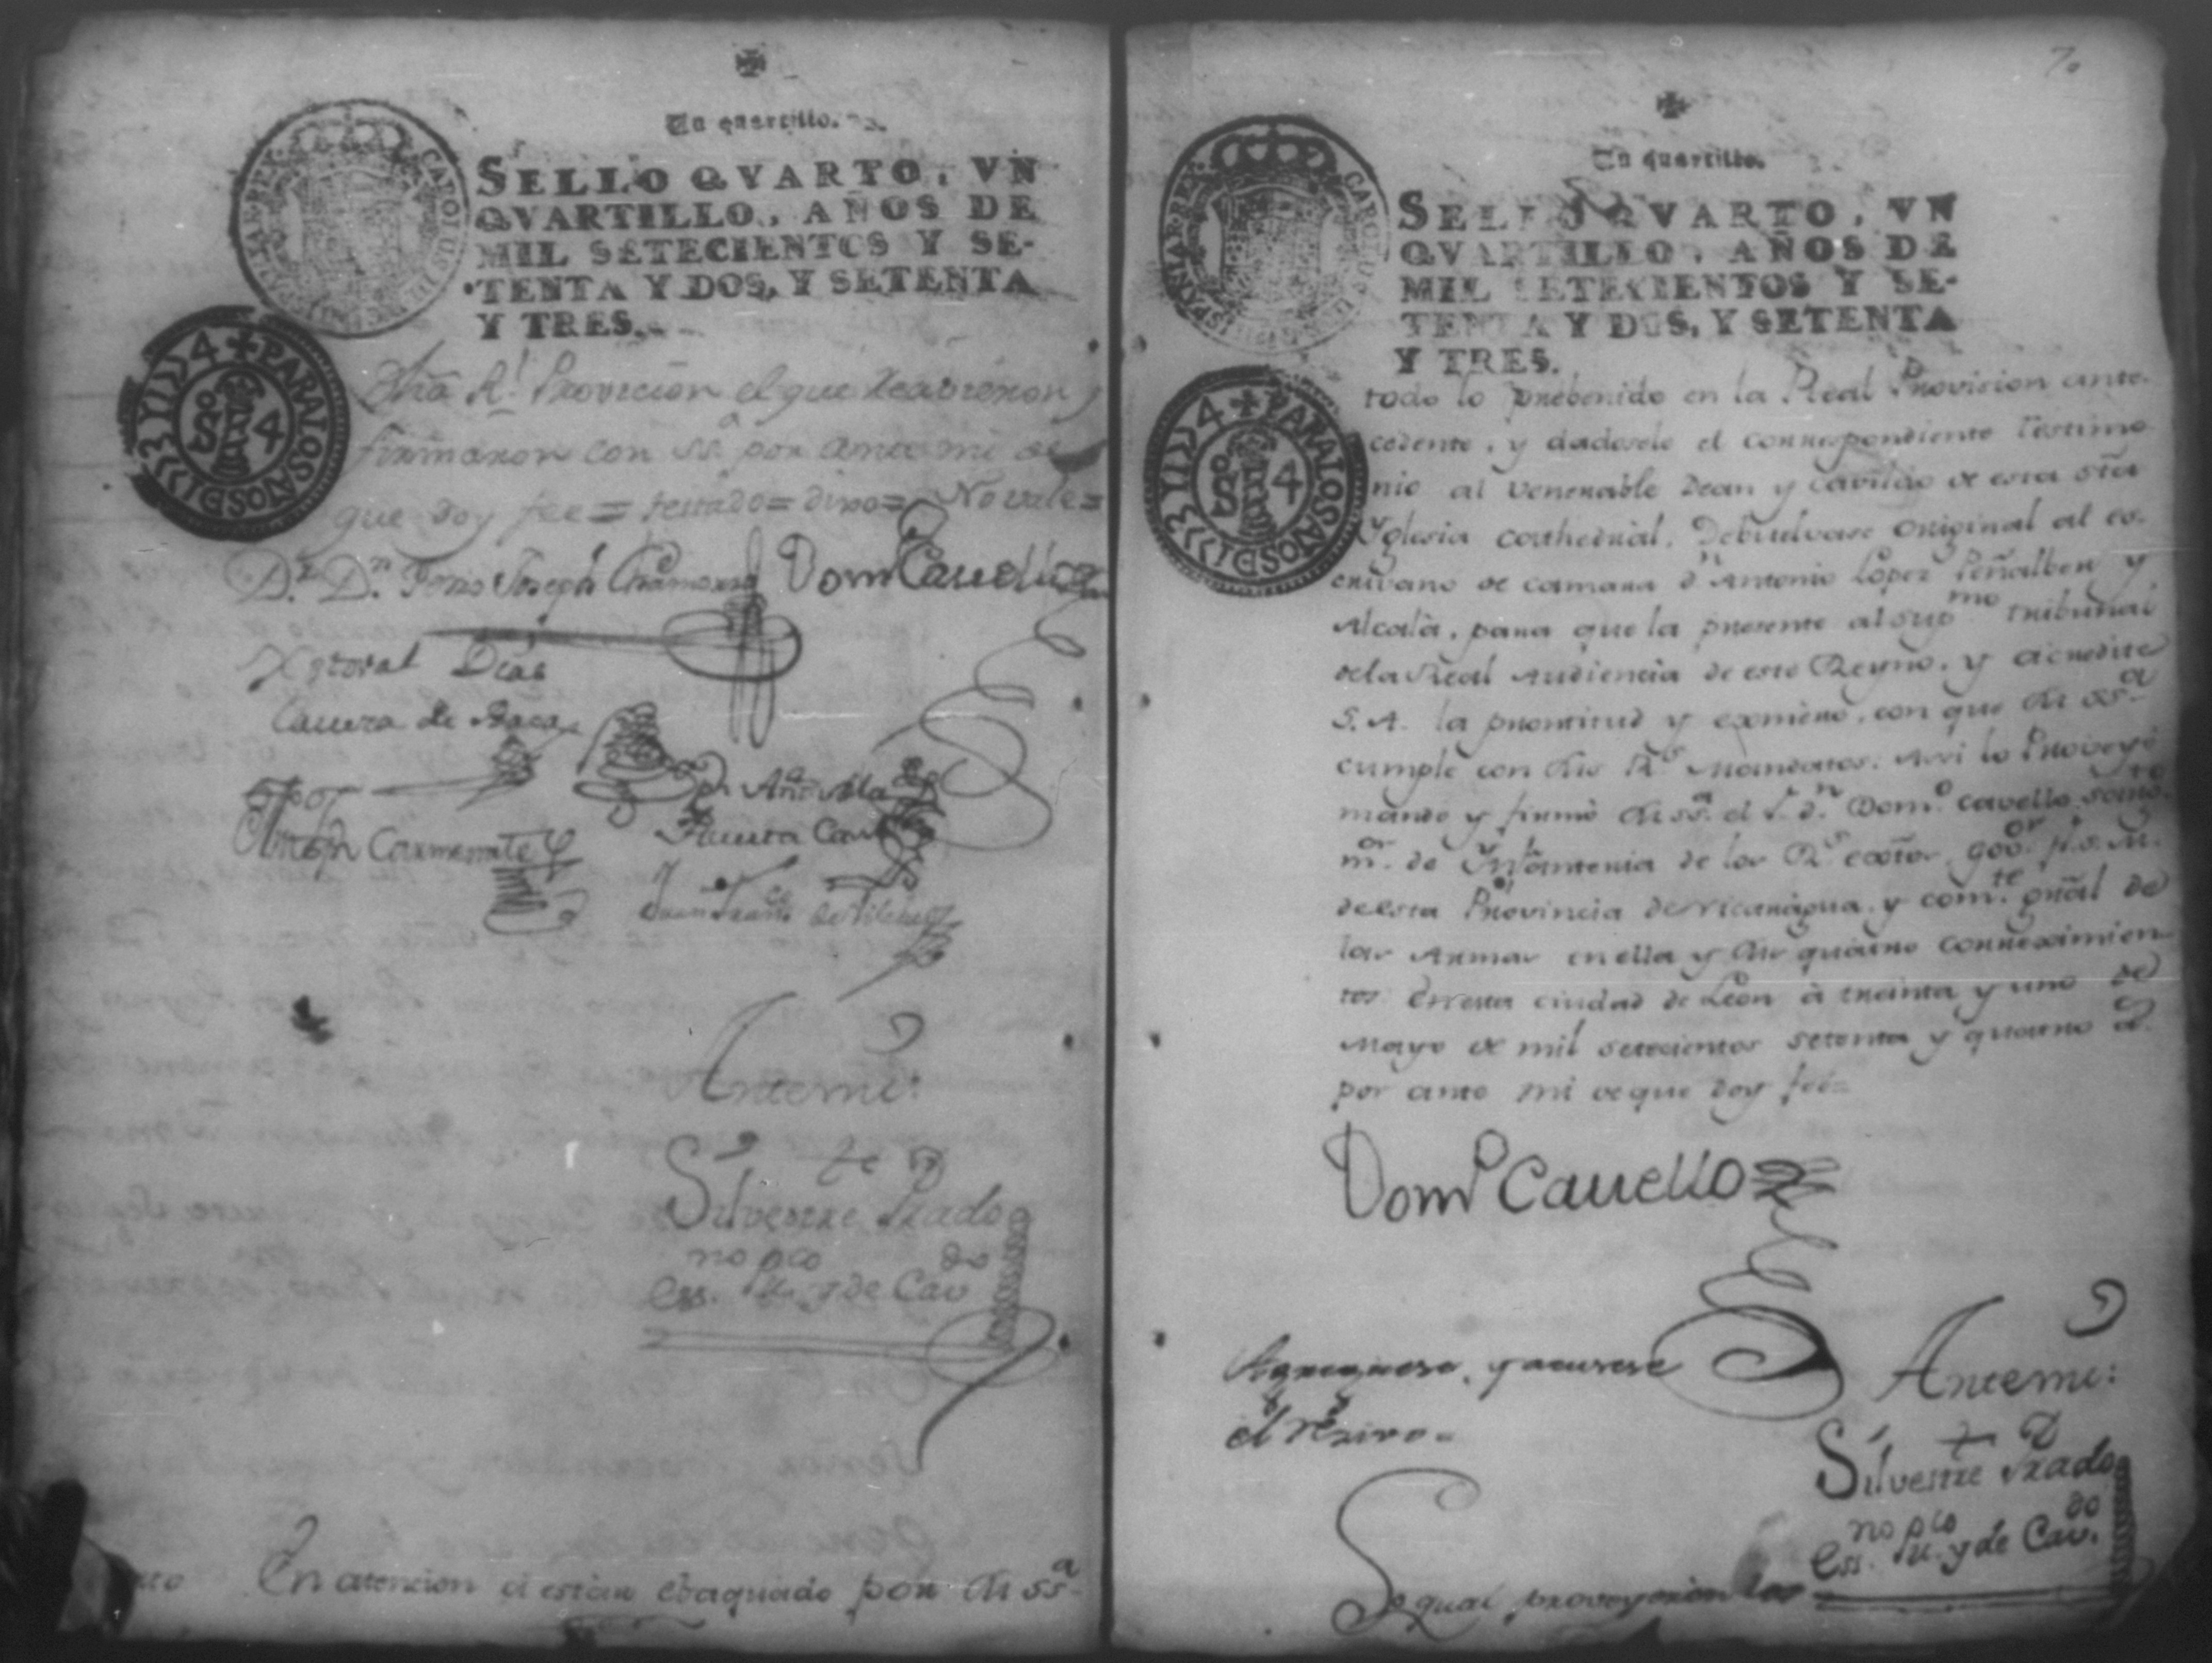 Un quartillo.
SELLO QVARTO, VN
QVARTILLO, AÑOS DE
MIL SETECIENTOS Y SE-
TENTA Y DOS, Y SETENTA
Y TRES.
PARA LOS AÑOS DI
So 4
dha Rl. Provicion el que
firmaron con ssa. por ante mi de
que doy fee = testado = dixo = No vale =
Dr. Dn. Joseph Chamorro Domo Cauello
Xptoval Dias
Carmenate
Juan Franco de Vilches
Antemi:
Silvestre Prado
Essno. pco y de Cavdo
En atencion á estár ebaquado por su ssa.
7.
Un quartillo.
SELLO QVARTO, VN
QVARTILLO, AÑOS DE
MIL SETECIENTOS Y SE-
TENTA Y DOS, Y SETENTA
Y TRES.
PARA LOS AÑOS DI
So 4
todo lo prebenido en la Real Provision ante-
cedente, y dadosele el correspondiente testimo-
nio al Venerable Dean y Cavildo de esta Sta
Yglesia cathedral. Debuelvase original al es-
crivano de camara dn Antonio Lopez Peñalben y
Alcala, para que la presente al supmo tribunal
de la Real Audiencia de este Reyno, y acredite
S. A. la prontitud y esmero, con que su ssa.
cumple con sus Rs. Mandatos. Assi lo Proveyó
mando y firmó su ssa. el Sr. dn. Domo. cavello
mor. de Ynfanteria de los Rs. exctos. goor. p. s. M.
de esta Provincia de Nicaragua, y comte. gnãl de
las Armas en ella y su quarto conneximien-
tos En esta ciudad de Leon à treinta y uno de
Mayo de mil setecientos setenta y quatro as.
por ante mi de que doy fee=
Domo Cauello
Agreguese, y acusese
el rezivo.
Antemi:
Silvestre Prado
Essno. pco. y de Cavdo.
Lo qual proveyeron los